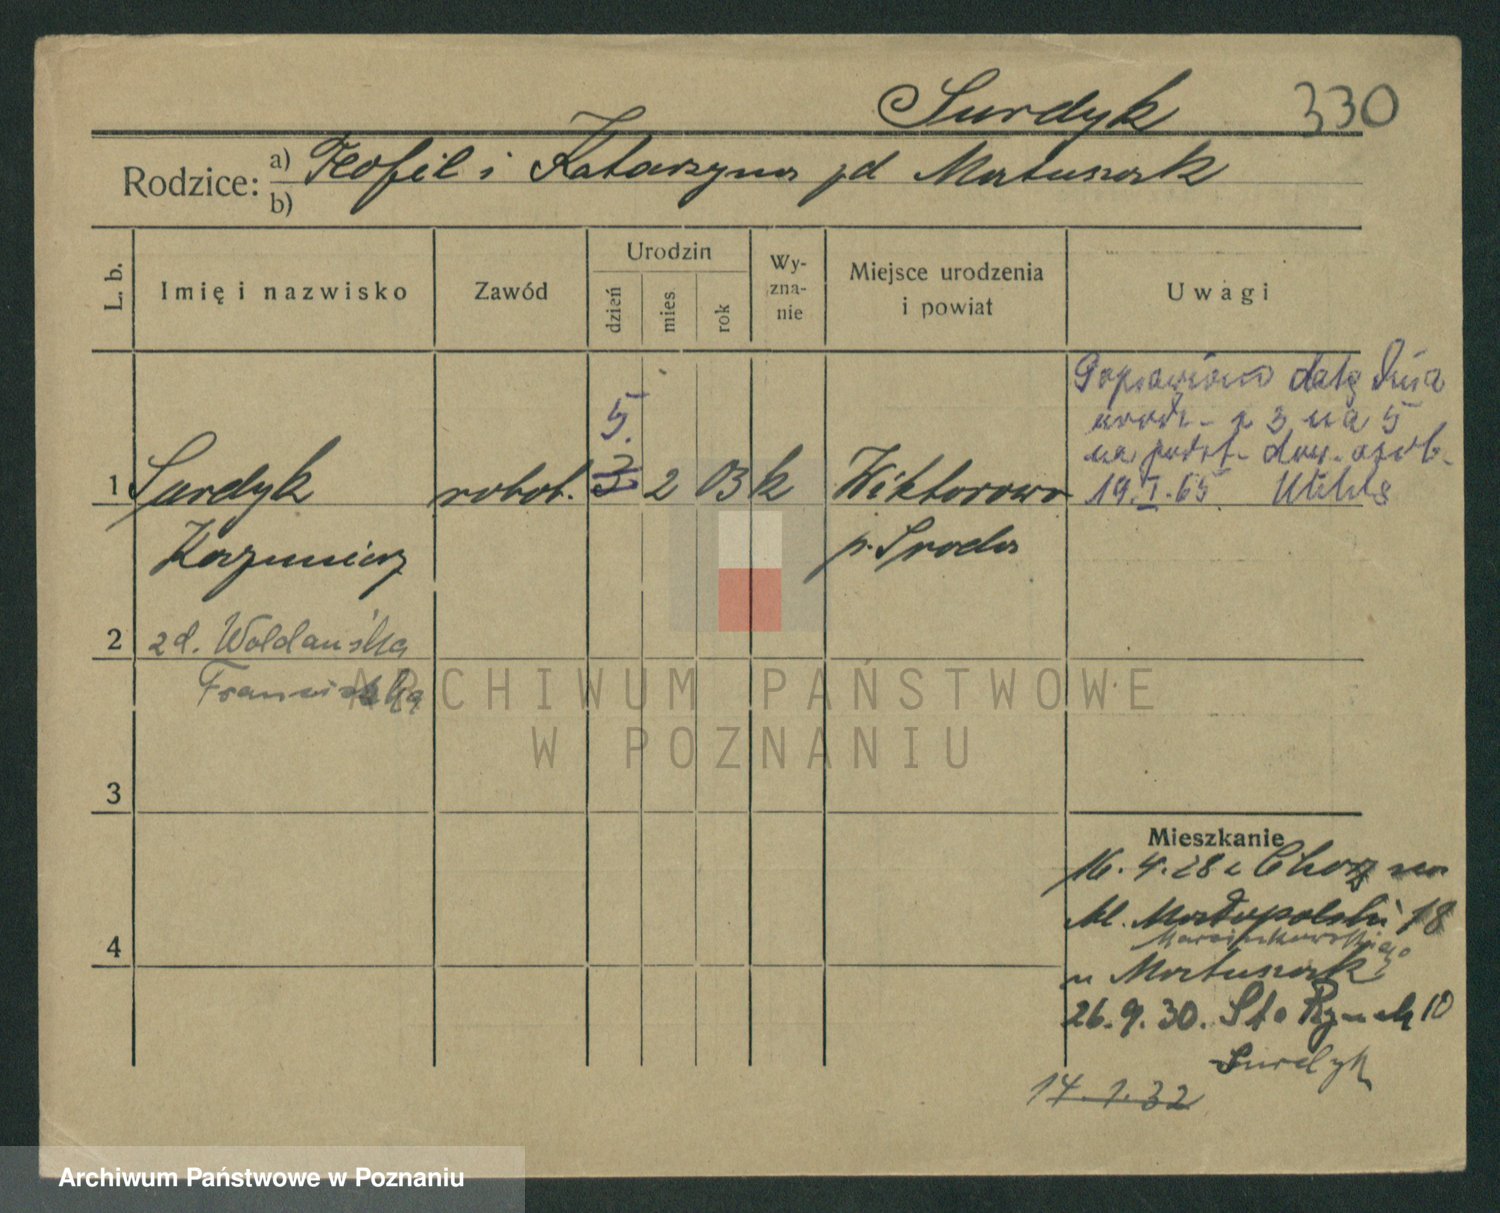 Surdyk 330
Rodzice: a) Teofil i Katarzyna zd Matuszak
b)
L. b. Imię i nazwisko Zawód Urodzin dzień mies rok Wy-zna-nie Miejsce urodzenia i powiat Uwagi
Poprawiono datę dnia
urodz. z 3 na 5
na podst. dow. osob.
19.I.65
5.
1 Surdyk robot. 3 2 03 k Wiktorowo
Kazimierz p. Środa
2 zd. Woldańska
Franciszka
3
Mieszkanie
16.4.28 z
Małopolski 18
Marcinkowskiego
4
u Matuszak
26.9.30. Sta Rynek 10
Surdyk
14.1.32
ARCHIWUM PAŃSTWOWE
W POZNANIU
Archiwum Państwowe w Poznaniu